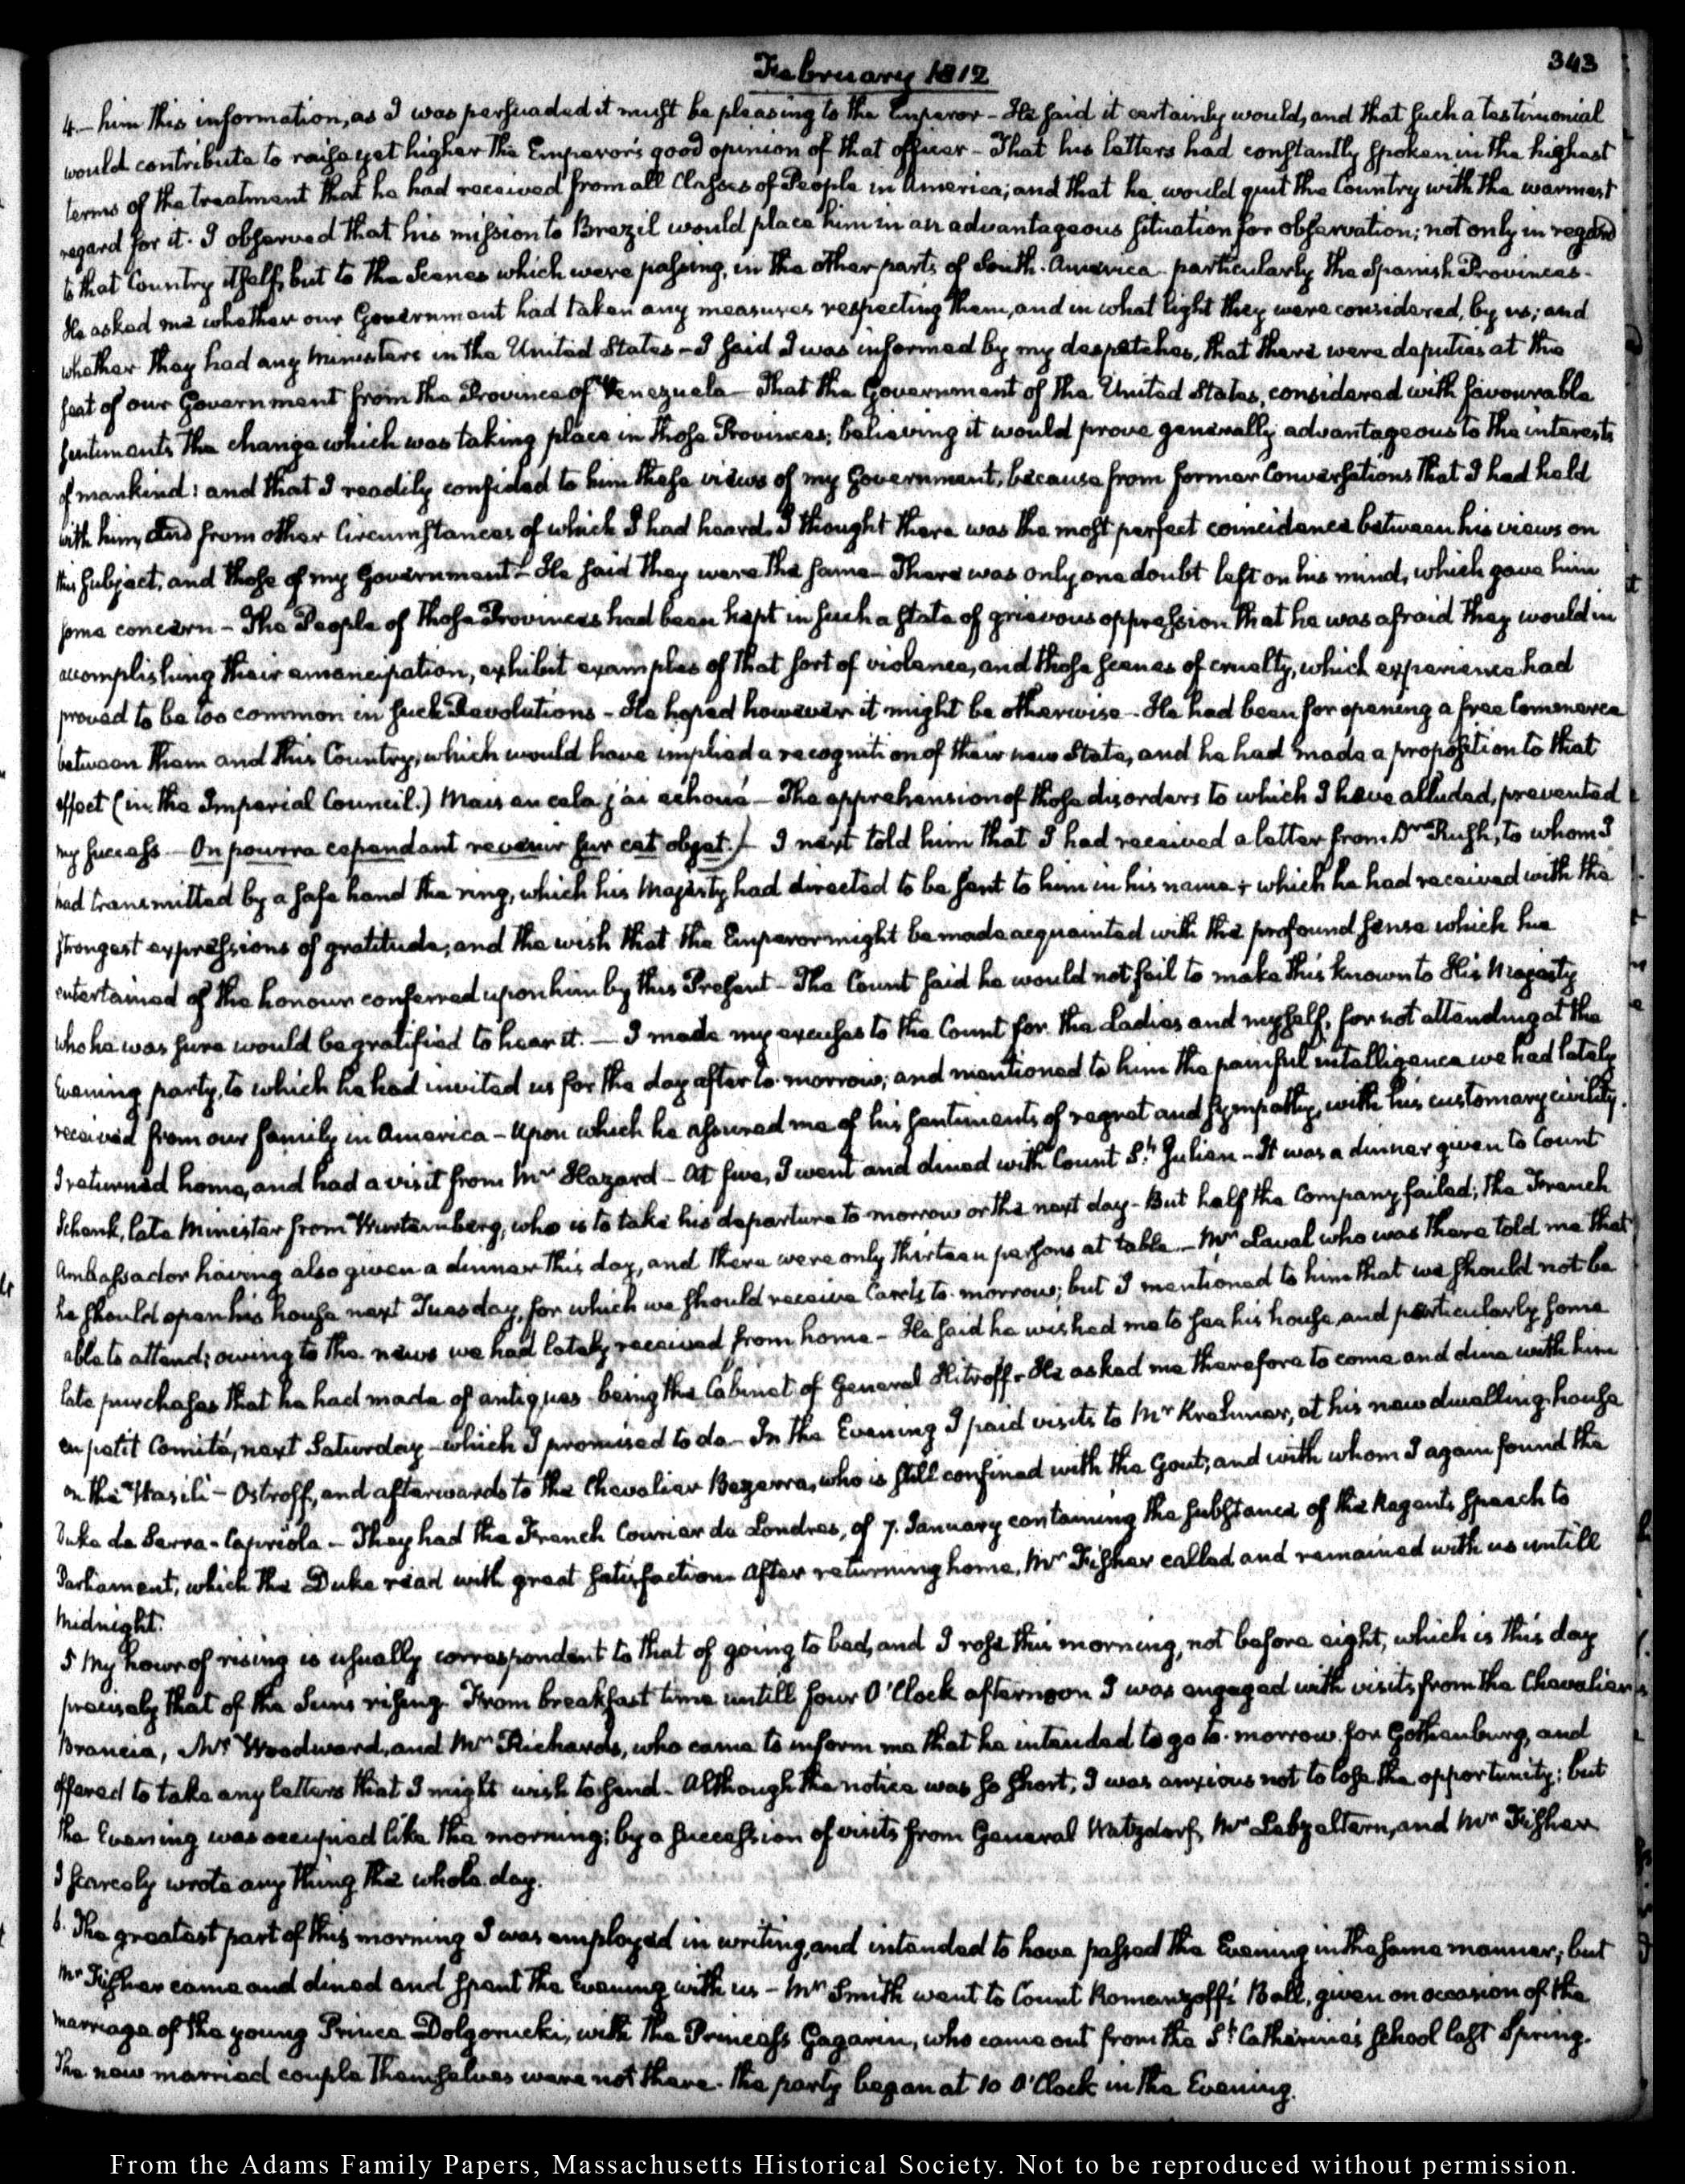 February 1812
343
4.— him this information, as I was persuaded it must be pleasing to the Emperor — He said it certainly would, and that such a testimonial
would contribute to raise yet higher the Emperor's good opinion of that officer — That his letters had constantly spoken in the highest
terms of the treatment that he had received from all Classes of People in America; and that he would quit the Country with the warmest
regard for it. I observed that his mission to Brazil would place him in an advantageous situation for observation; not only in regard
to that Country itself, but to the Scenes which were passing, in the other parts of South-America — particularly the Spanish Provinces —
He asked me whether our Government had taken any measures respecting them, and in what light they were considered, by us; and
whether they had any Ministers in the United States — I said I was informed by my despatches, that there were deputies at the
seat of our Government from the Province of Venezuela — That the Government of the United States, considered with favourable
sentiments the change which was taking place in those Provinces; believing it would prove generally advantageous to the interests
of mankind: and that I readily confided to him these views of my Government, because from former Conversations that I had held
with him, and from other Circumstances of which I had heard, I thought there was the most perfect coincidence between his views on
this subject, and those of my Government — He said they were the same — There was only one doubt left on his mind, which gave him
some concern — The People of those Provinces had been kept in such a state of grievous oppression that he was afraid they would in
accomplishing their emancipation, exhibit examples of that sort of violence, and those scenes of cruelty, which experience had
proved to be too common in such Revolutions — He hoped however it might be otherwise — He had been for opening a free Commerce
between them and this Country, which would have implied a recognition of their new State, and he had made a proposition to that
effect (in the Imperial Council.) Mais en cela j'ai echoué — The apprehension of those disorders to which I have alluded, prevented
my success — On pourra cependant revenir sur cet objet. — I next told him that I had received a letter from Dr. Rush, to whom I
had transmitted by a safe hand the ring, which his Majesty had directed to be sent to him in his name; which he had received with the
strongest expressions of gratitude; and the wish that the Emperor might be made acquainted with the profound sense which he
entertained of the honour conferred upon him by this Present — The Count said he would not fail to make this known to His Majesty
who he was sure would be gratified to hear it. — I made my excuses to the Count for the Ladies and myself, for not attending at the
Evening party, to which he had invited us for the day after to-morrow; and mentioned to him the painful intelligence we had lately
received from our family in America — Upon which he assured me of his sentiments of regret and sympathy, with his customary civility.
I returned home, and had a visit from Mr Hazard — At five, I went and dined with Count St. Julien — It was a dinner given to Count
Schenk, late Minister from Wurtemberg, who is to take his departure to-morrow or the next day — But half the Company failed; the French
Ambassador having also given a dinner this day, and there were only thirteen persons at table — Mr Laval who was there told me that
he should open his house next Tuesday, for which we should receive Cards to-morrow; but I mentioned to him that we should not be
able to attend; owing to the news we had lately received from home — He said he wished me to see his house, and particularly some
late purchases that he had made of antiques — being the Cabinet of General Hitroff — He asked me therefore to come and dine with him
en petit Comité, next Saturday — which I promised to do — In the Evening I paid visits to Mr Krehmer, at his new dwelling-house
on the Wasili-Ostroff, and afterwards to the Chevalier Bezerra, who is still confined with the Gout; and with whom I again found the
Duke de Serra-Capriola — They had the French Courier de Londres, of 7. January containing the substance of the Regents speech to
Parliament, which the Duke read with great satisfaction — After returning home, Mr Fisher called and remained with us untill
Midnight.
5 My hour of rising is usually correspondent to that of going to bed, and I rose this morning, not before eight, which is this day
precisely that of the Suns rising. From breakfast time untill four O'Clock afternoon I was engaged with visits from the Chevalier
Brancia, Mr Woodward, and Mr Richards, who came to inform me that he intended to go to-morrow for Gothenburg, and
offered to take any letters that I might wish to send — Although the notice was so short, I was anxious not to lose the opportunity: but
the Evening was occupied like the morning; by a succession of visits from General Watzdorf, Mr Lebzeltern, and Mr Fisher.
I scarcely wrote any thing the whole day.
6. The greatest part of this morning I was employed in writing, and intended to have passed the Evening in the same manner; but
Mr Fisher came and dined and spent the Evening with us — Mr Smith went to Count Romanzoff's Ball, given on occasion of the
marriage of the young Prince Dolgorucki, with the Princess Gagarin, who came out from the St. Catherine's School last Spring.
The new married couple themselves were not there. The party began at 10 O'Clock in the Evening.
From the Adams Family Papers, Massachusetts Historical Society. Not to be reproduced without permission.